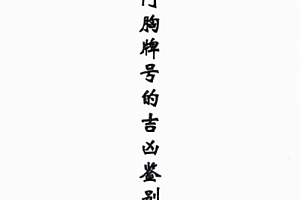 胸牌号的吉凶鉴别